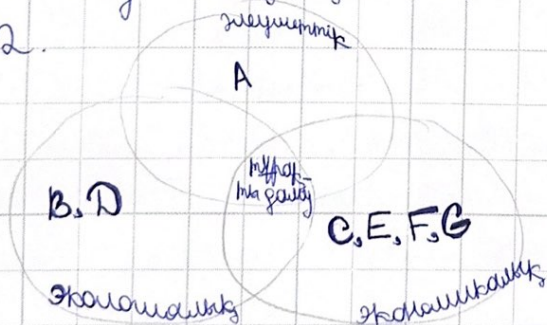 әлеуметтік
2.
A
тұрақ-
ты даму
B, D
C, E, F, G
Экологиялық
экономикалық